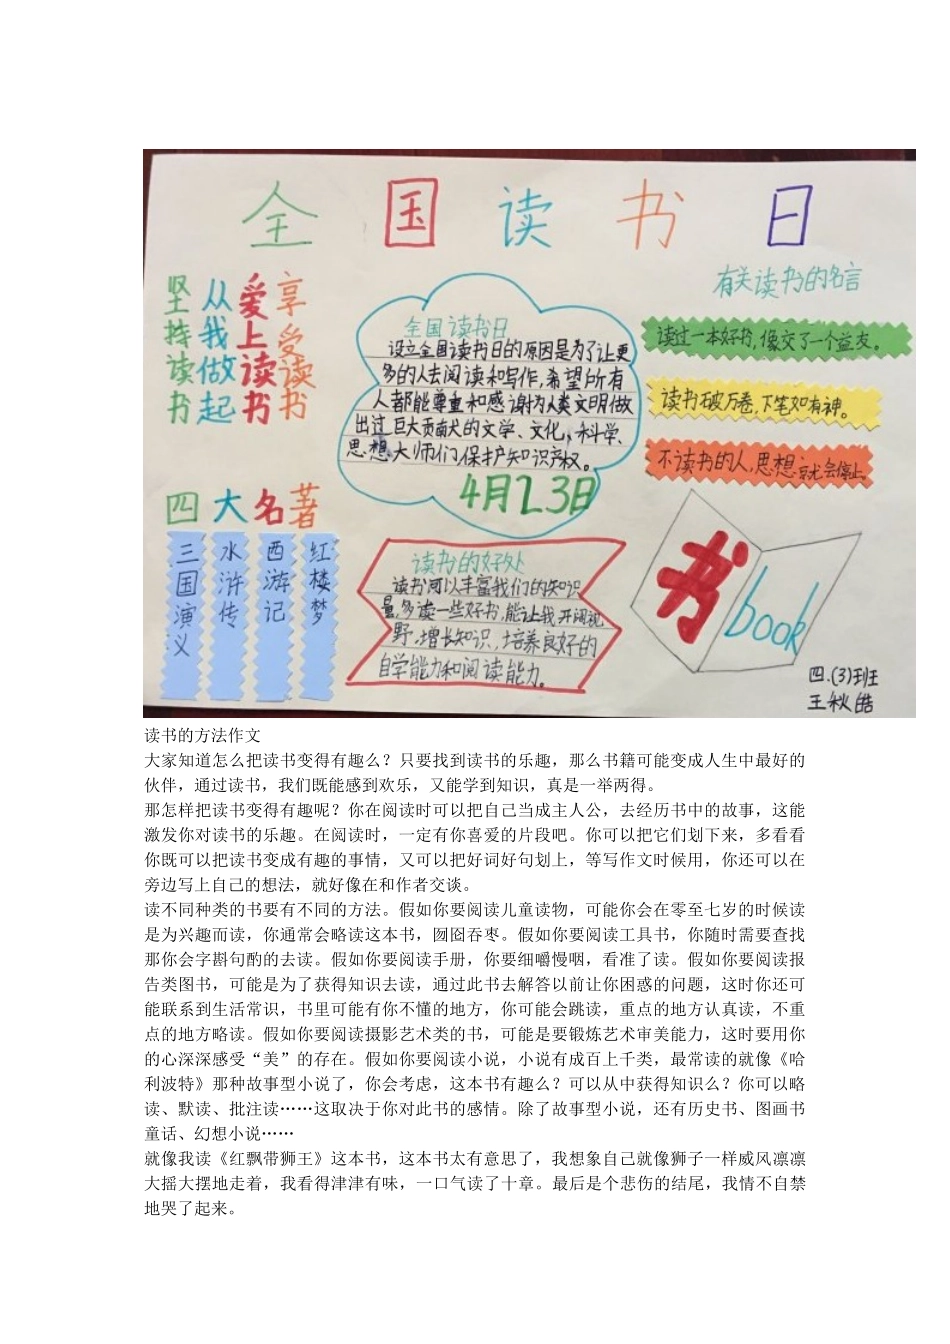 全国读书日
坚持读书
从我做起
爱上读书
享受读书
四大名著
三国演义
水浒传
西游记
红楼梦
全国读书日
设立全国读书日的原因是为了让更
多的人去阅读和写作,希望所有
人都能尊重和感谢为人类文明做
出过巨大贡献的文学、文化、科学、
思想大师们,保护知识产权。
4月23日
读书的好处
读书可以丰富我们的知识
量,多读一些好书,能让我开阔视
野,增长知识,培养良好的
自学能力和阅读能力。
有关读书的名言
读过一本好书,像交了一个益友。
读书破万卷,下笔如有神。
不读书的人,思想就会停止。
书
book
四.(3)班
王秋皓
读书的方法作文
大家知道怎么把读书变得有趣么？只要找到读书的乐趣，那么书籍可能变成人生中最好的
伙伴，通过读书，我们既能感到欢乐，又能学到知识，真是一举两得。
那怎样把读书变得有趣呢？你在阅读时可以把自己当成主人公，去经历书中的故事，这能
激发你对读书的乐趣。在阅读时，一定有你喜爱的片段吧。你可以把它们划下来，多看看
你既可以把读书变成有趣的事情，又可以把好词好句划上，等写作文时候用，你还可以在
旁边写上自己的想法，就好像在和作者交谈。
读不同种类的书要有不同的方法。假如你要阅读儿童读物，可能你会在零至七岁的时候读
是为兴趣而读，你通常会略读这本书，囫囵吞枣。假如你要阅读工具书，你随时需要查找
那你会字斟句酌的去读。假如你要阅读手册，你要细嚼慢咽，看准了读。假如你要阅读报
告类图书，可能是为了获得知识去读，通过此书去解答以前让你困惑的问题，这时你还可
能联系到生活常识，书里可能有你不懂的地方，你可能会跳读，重点的地方认真读，不重
点的地方略读。假如你要阅读摄影艺术类的书，可能是要锻炼艺术审美能力，这时要用你
的心深深感受“美”的存在。假如你要阅读小说，小说有成百上千类，最常读的就像《哈
利波特》那种故事型小说了，你会考虑，这本书有趣么？可以从中获得知识么？你可以略
读、默读、批注读……这取决于你对此书的感情。除了故事型小说，还有历史书、图画书
童话、幻想小说……
就像我读《红飘带狮王》这本书，这本书太有意思了，我想象自己就像狮子一样威风凛凛
大摇大摆地走着，我看得津津有味，一口气读了十章。最后是个悲伤的结尾，我情不自禁
地哭了起来。